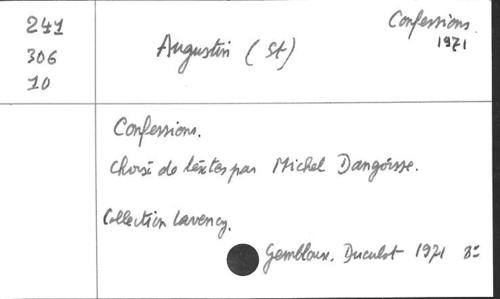 241
306
10
Augustin (St)
Confessions
1971
Confessions.
Choix de textes par Michel Dangoisse.
Collection Lavency.
Gembloux. Duculot 1971 8=